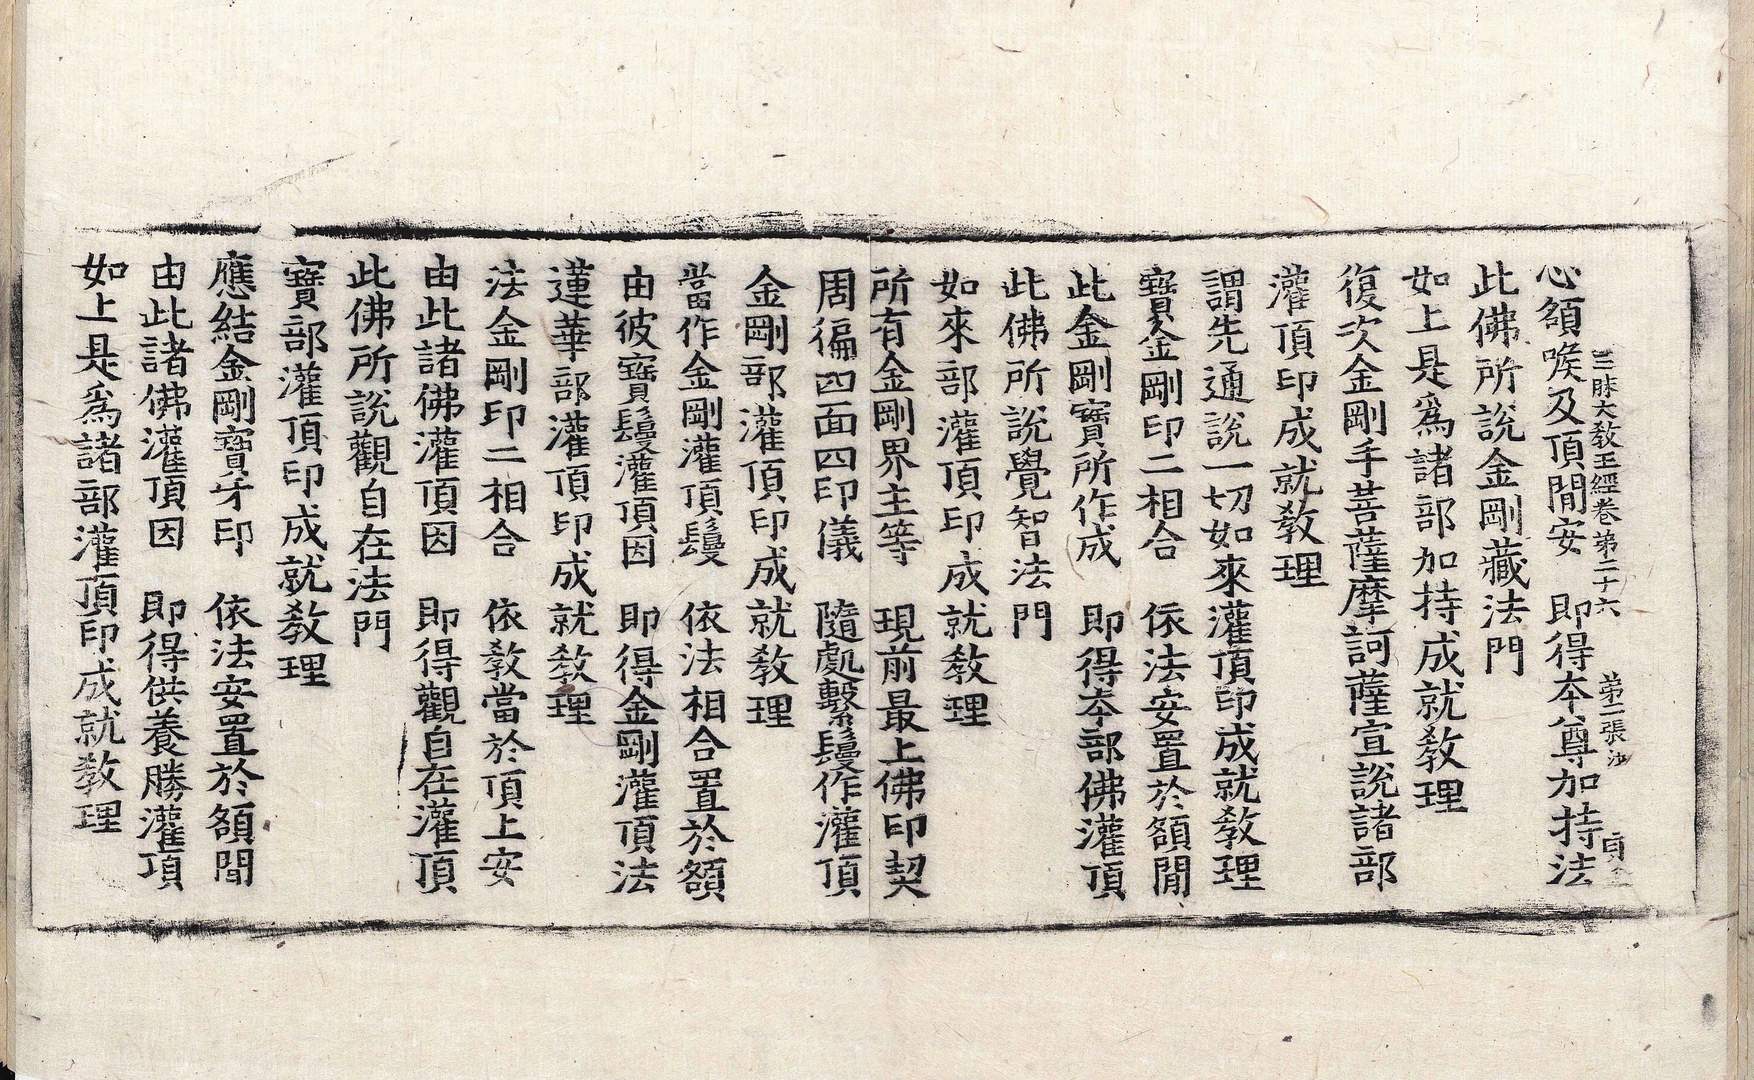 三昧大教王經卷第二十六 第二張 汝
心額喉及頂間安 即得本尊加持法
此佛所說金剛藏法門
如上是爲諸部加持成就教理
復次金剛手菩薩摩訶薩宣說諸部
灌頂印成就教理
謂先通說一切如來灌頂印成就教理
寶金剛印二相合 依法安置於額間
此金剛寶所作成 即得本部佛灌頂
此佛所說覺智法門
如來部灌頂印成就教理
所有金剛界主等 現前最上佛印契
周徧四面四印儀 隨處繫鬘作灌頂
金剛部灌頂印成就教理
當作金剛灌頂鬘 依法相合置於額
由彼寶鬘灌頂因 即得金剛灌頂法
蓮華部灌頂印成就教理
法金剛印二相合 依教當於頂上安
由此諸佛灌頂因 即得觀自在灌頂
此佛所說觀自在法門
寶部灌頂印成就教理
應結金剛寶牙印 依法安置於額間
由此諸佛灌頂因 即得供養勝灌頂
如上是爲諸部灌頂印成就教理